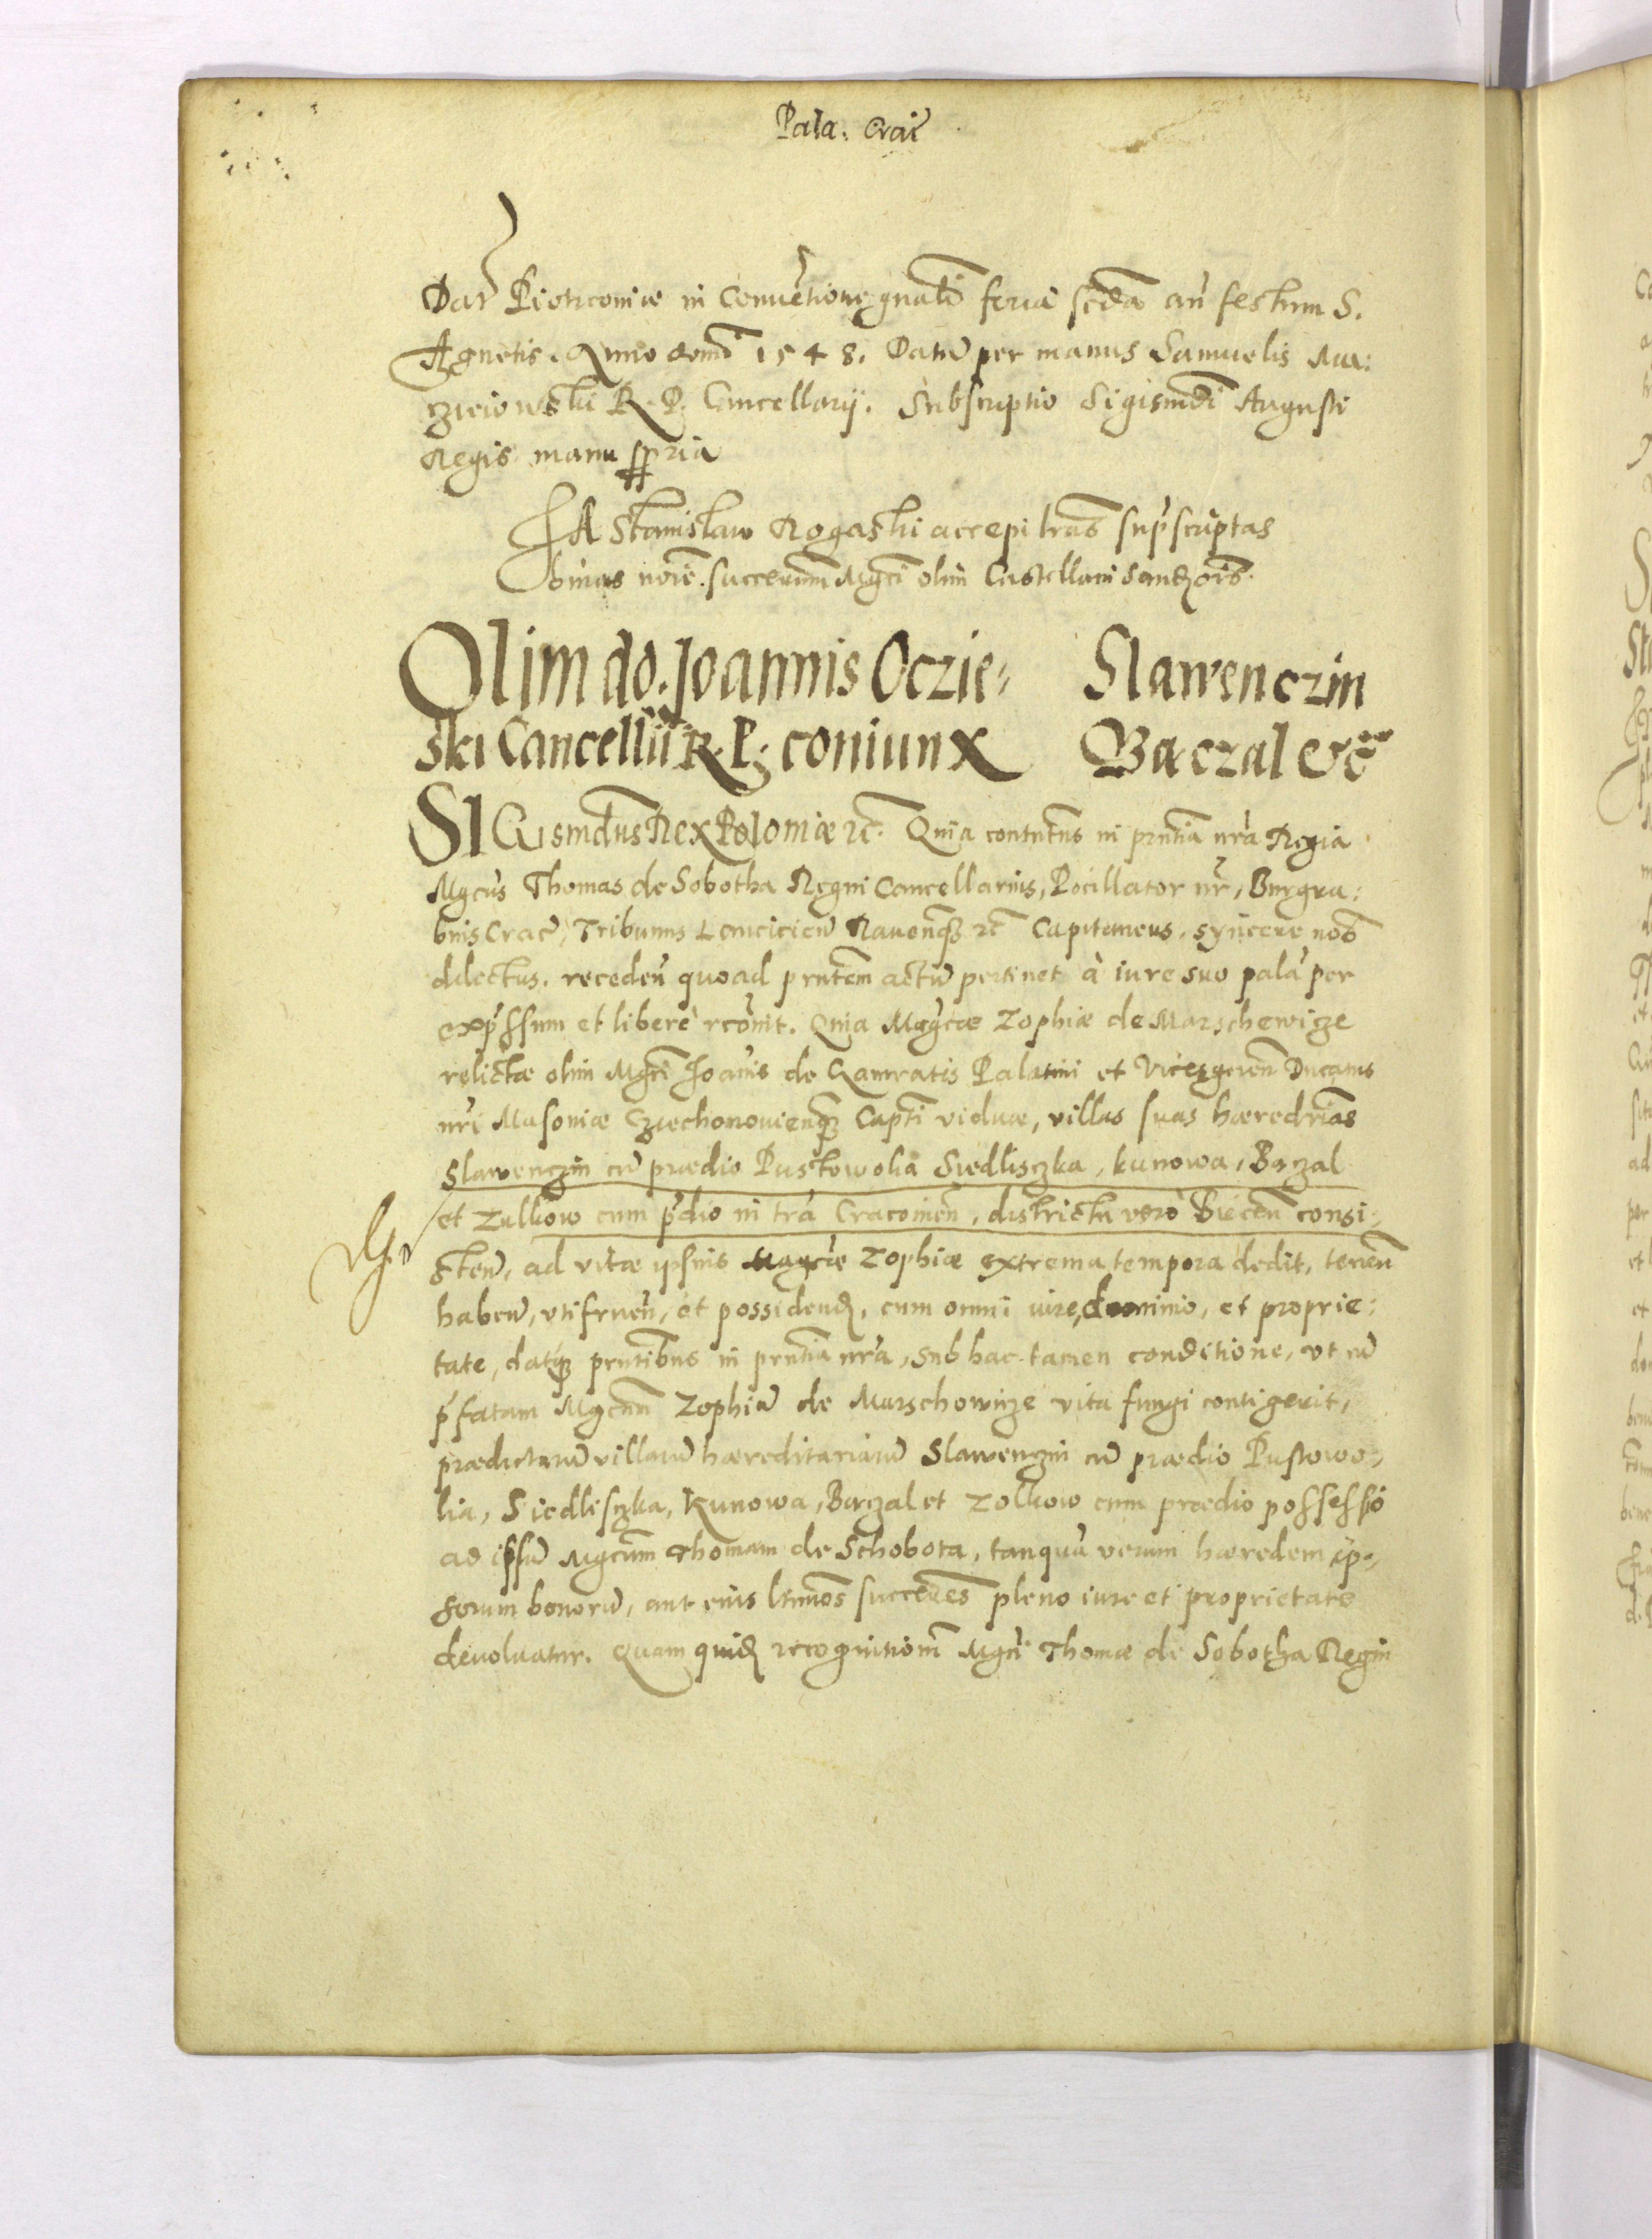 Pala. Crac̃
Dat̃ Piotrcoviæ in Conuẽtione gñali feria scďa añ festum S.
Agnetis. Anno domĩ 1548. Datũ per manus Samuelis Ma:
cziciowski R. P. Cancellarij. Subscriptio Sigismďi Augusti
Regis manu ppria
JA Stanislaw Rogaski accepi lrãs supscriptas
boñas noiẽ succeorum Mgci olim Castellani Sandzoris.
Olim do. Joannis Oczie-
ski Cancellrii R. P. coniunx
Slawenczin
Baczal etc̃
SIGismďus Rex Poloniæ etc̃. Quia contntũs in prñtia nrã Regia
Mgcus Thomas de Sobotha Regni Cancellarius, Pocillator nr̃, Burgra:
bius Crac̃, Tribunus Lencicien̄ Rauenqʒ etc̃ Capitaneus, syncere nob̃
dilectus. receden̄ quoad prñtem actũ pertinet à iure suo palã per
exp̃ssum et liberè recõuit. Quia Magcæ Zophiæ de Marschewicze
relictæ olim Mgci Joañis de Gamratis Palatini et Vicesgeren̄ Ducatus
nri Masoniæ Cziechonouienqʒ Capti viduæ, villas suas hæredrias
Slawenczin cũ prædio Pustowolia Siedlisczka, Kunowa, Baczal
et Zulkow cum p̃dio in trã Cracouien̄, districtu verò Biecen̄ consi-
sten̄, ad vitæ ipsius Magcæ Zophiæ extrema tempora dedit, tenen̄
haben̄, vtifruen̄, et possidenď, cum omni iure, dominio, et proprie:
tate, datqʒ prñtibus in prñtia nrã, sub hac tamen conditione, vt cũ
p̃fatam Mgcam Zophiã de Marschowicze vita fungi contigerit,
prædictarũ villarũ hæreditariarũ Slawenczin cũ prædio Pustowo-
lia, Siedlisczka, Kunowa, Baczal et Zolkow cum prædio possessio
ad ipsũ Mgcum Thomam de Schobota, tanquã verum hæredem ip-
sorum bonorũ, aut eius ltimos succeres pleno iure et proprietate
deuoluatur. Quam quiď recognitionem Mgci Thomæ de Sobotha Regni